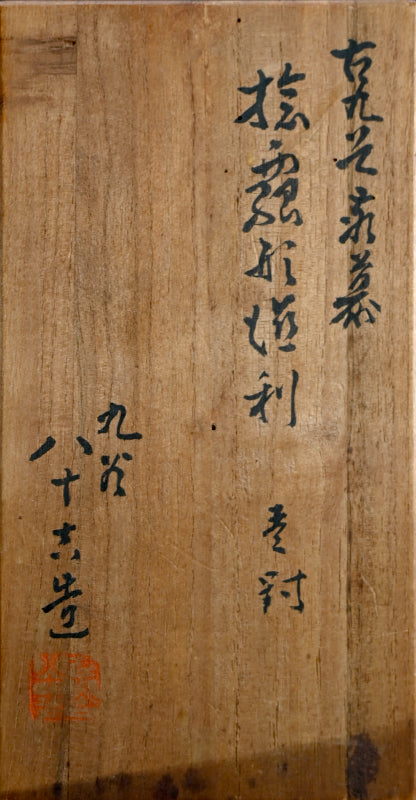 古九谷慕
捻瓢形徳利 壱対
九谷
八十吉造